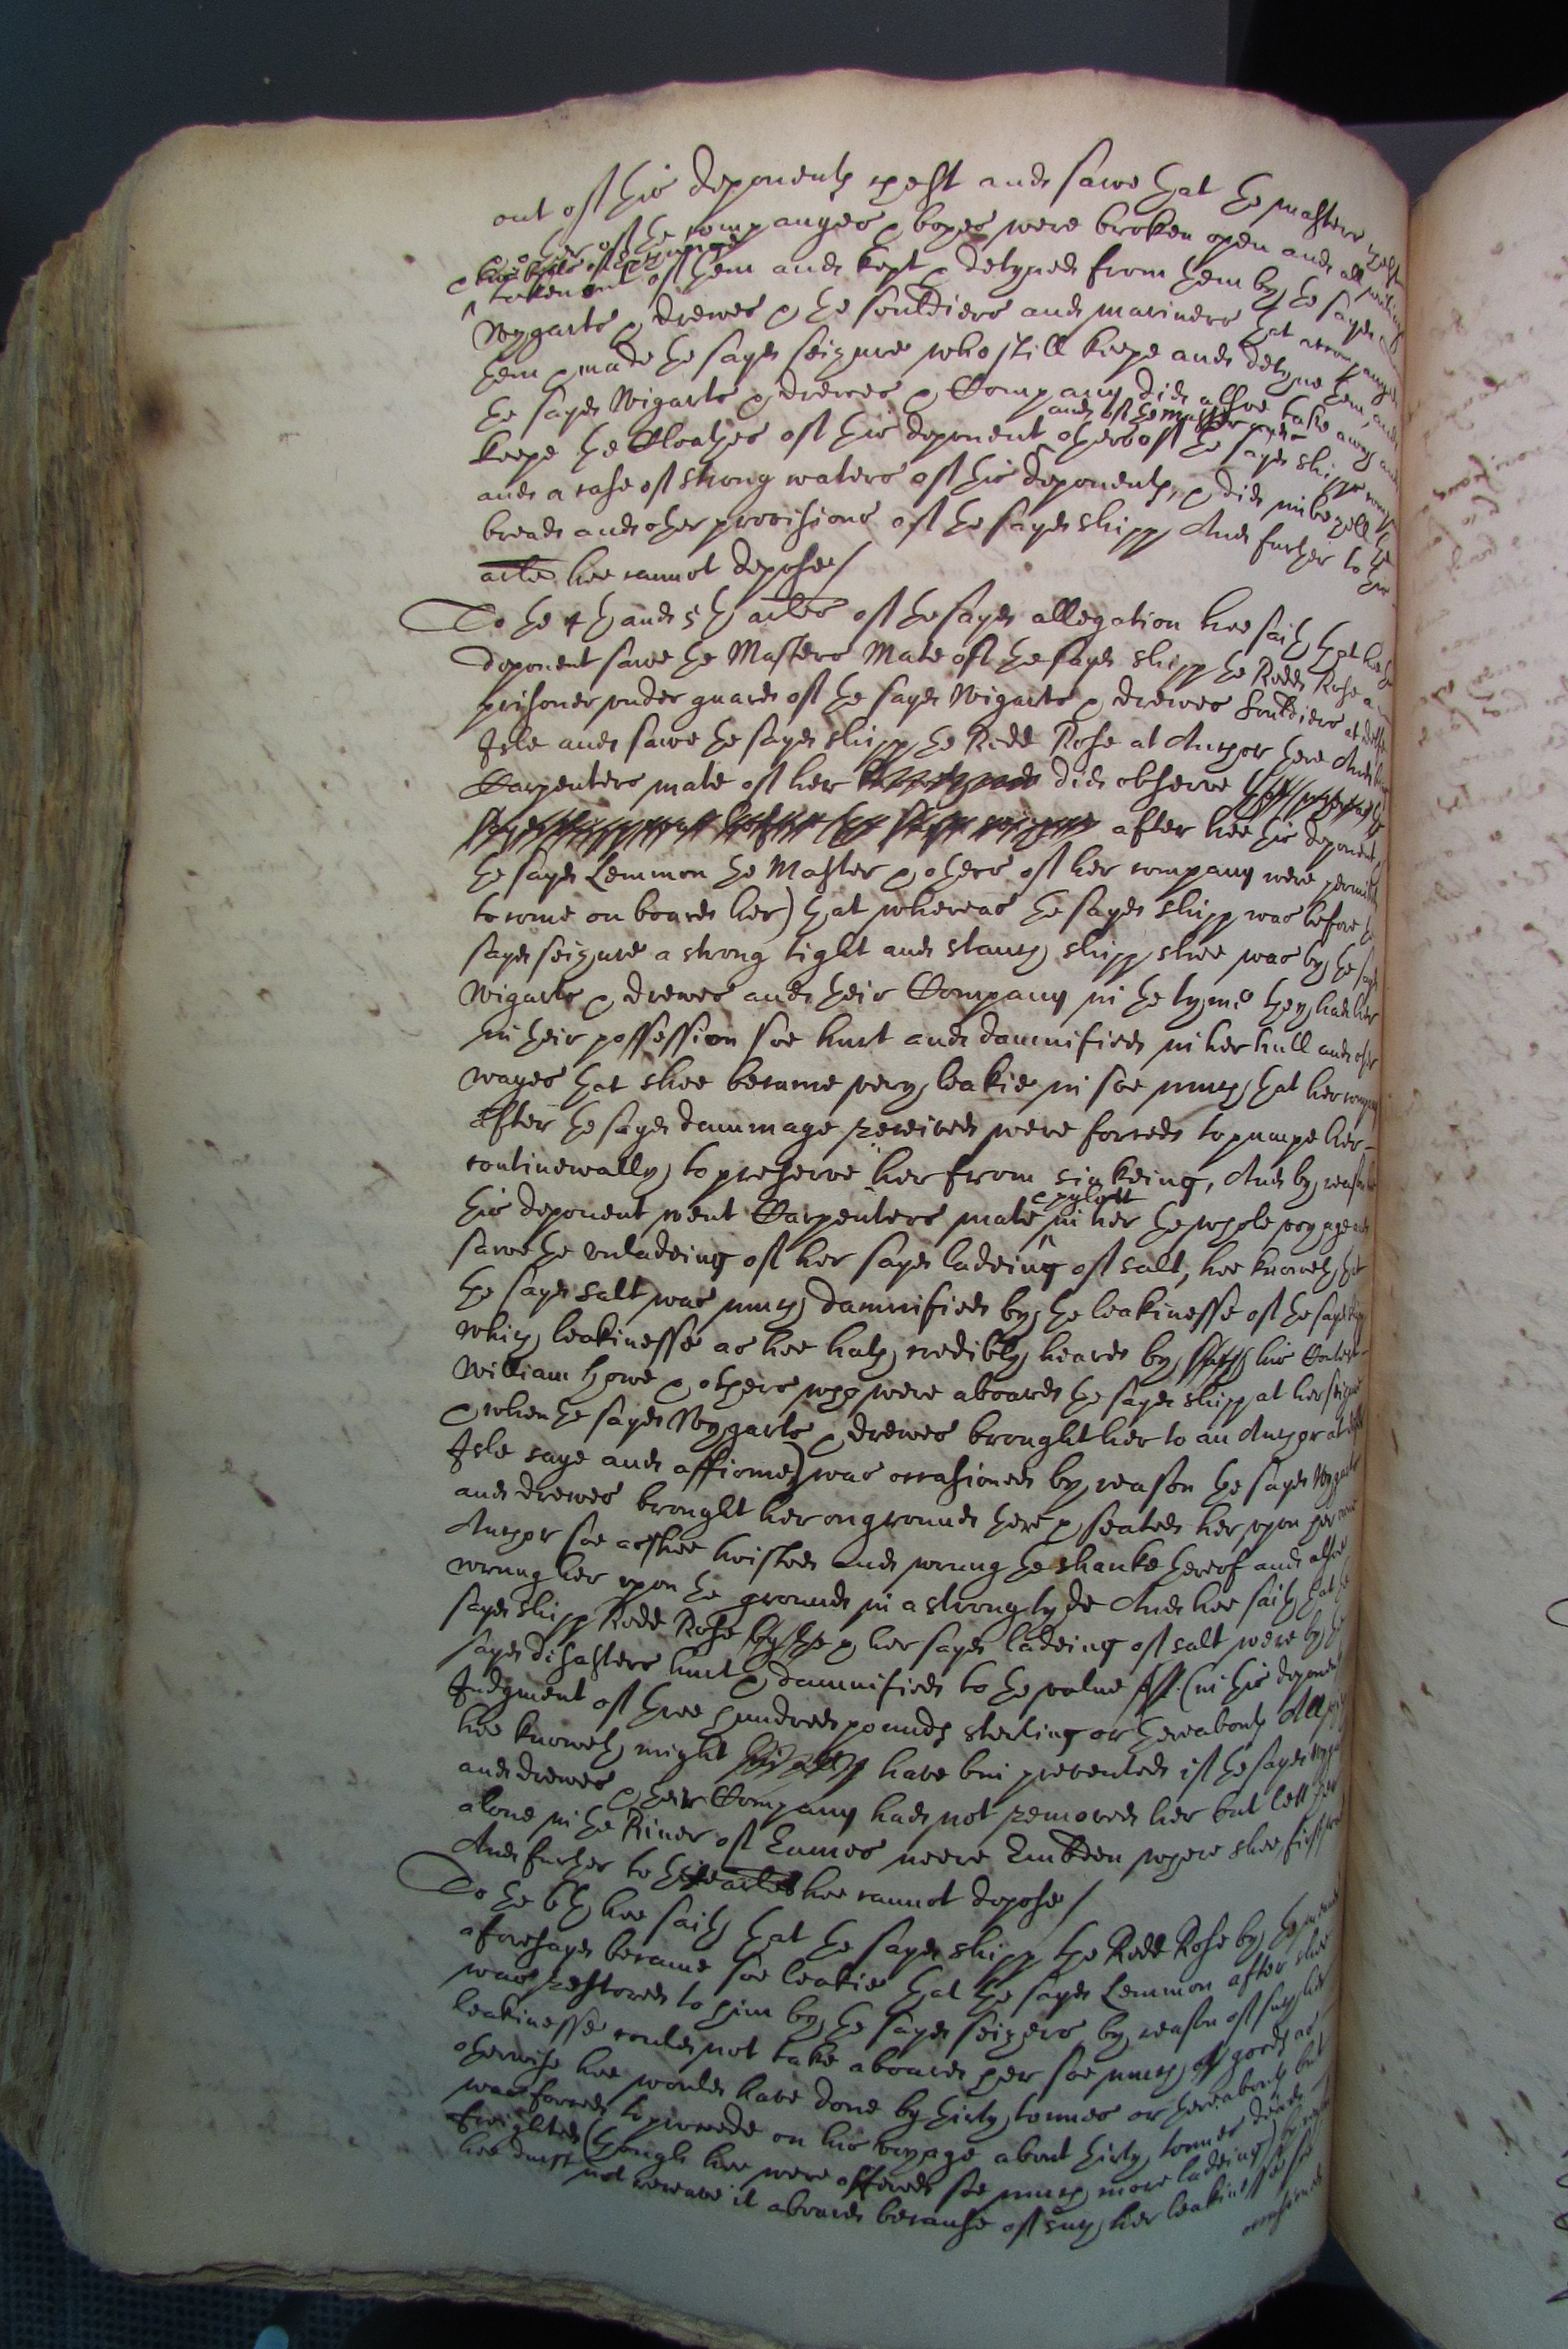 out of this deponents chest and sawe that the masters chest
& other of the companyes & boxes were broken open and all
taken out of them and kept & detyned from them by the sayd
Wygarts & drewes & the souldiers and mariners that accompanyed
them & made the sayd seizure who still keepe and detyne them, and
the sayd Wigarts & drewes & Company did alsoe take away and
keepe the Cloathes of this deponent and of the master and others of the sayd shipps
and a case of strong waters of this deponents, & did imbezell the
bread and other provisions of the sayd shipp And further to this
arle hee cannot depose/
To the 4th and 5th arles of the sayd allegation hee saith that hee this
deponent sawe the Masters Mate of the sayd shipp the Redd Rose a
prisoner under guard of the sayd Wigarts & drewes Souldiers at
Isle and sawe the sayd shipp the Redd Rose at Anchor there And
Carpenters mate of her did observe
after hee this deponent
the sayd Lemmon the Master & others of her company were permitted
to come on board her) that whereas the sayd shipp was before the
sayd seizure a strong tight and stanch shipp shee was by the sayd
Wigarts & drewes and their Company in the tyme they had her
in their possession soe hurt and damnified in her hull and other
wayes that shee became very leakie in soe much that her company
after the sayd dammage received were forced to pumpe her
continewally to preserve her from sinkeing, And by reason hee
this deponent went Carpenters mate & pylott in her the whole voyage and
sawe the unladeing of her sayd ladeing of salt, hee knoweth that
the sayd salt was much damnified by the leakinesse of the sayd shipp
which leakinesse as hee hath credibly heard by his Contest
William Howe & others who were aboard the sayd shipp at her seizure
& when the sayd Wygarts & drewes brought her to an Anchor at
Isle saye and affirme) was occasioned by reason the sayd Wygarts
and drewes brought her on ground there & seated her upon her owne
Anchor soe as shee hoisted and wrung the shanke thereof and alsoe
wrung her upon the ground in a strong tyde And hee saith that the
sayd shipp Redd Rose & her sayd ladeing of salt were by the
sayd disasters hurt & damnified to the value (in this deponents
Judgment of three hundred pounds sterling or thereabouts All which
hee knoweth might have bin prevented if the sayd Wygarts
and drewes & their Company had not removed her but left her
alone in the River of Eames neere Embden where shee first was
And further to these arles hee cannot depose/
To the 6th hee saith that the sayd shipp the Redd Rose by the meanes
aforesayd became soe leakie that the sayd Lemmon after shee
was restored to him by the sayd seizers by reason of such her
leakinesse could not take aboard her soe much goods as
otherwise hee would have done by thirty tonnes or thereabouts but
was forced to proceede on his voyage about thirty tonnes dead
freighted (though hee were offered soe much more ladeing) by reason
hee durst not receave it aboard because of such her leakinesse soe
occasioned